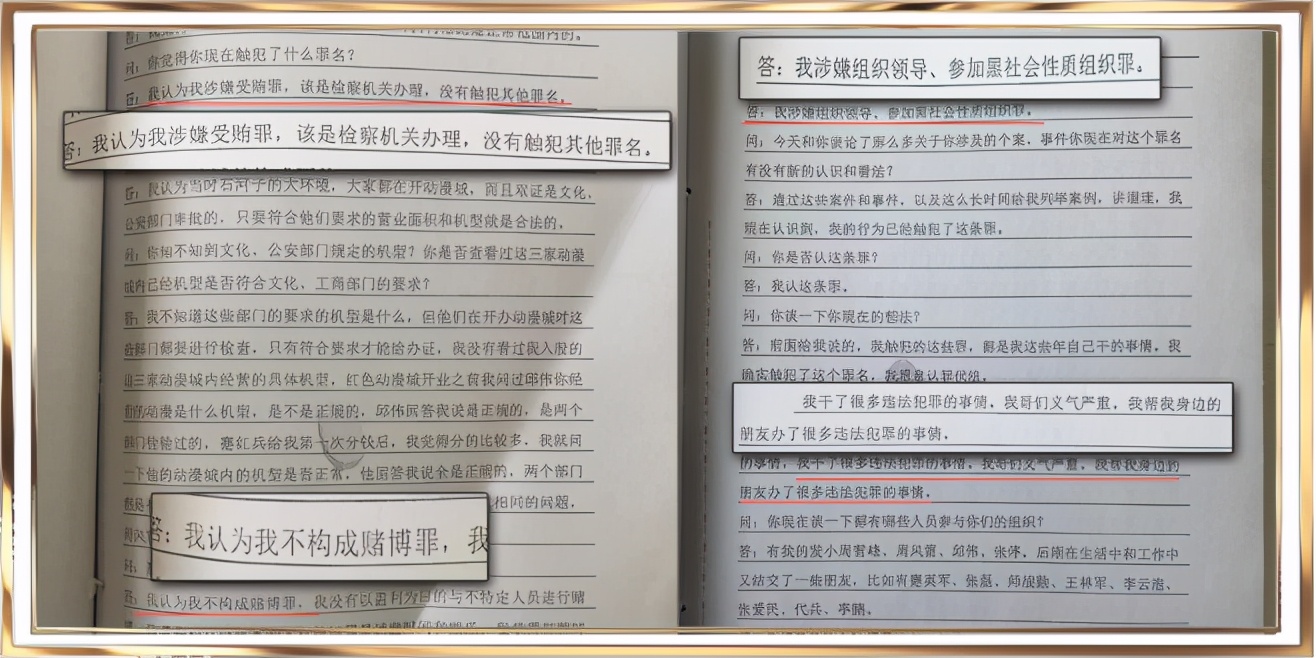 问：你觉得你现在触犯了什么罪名？
答：我认为我涉嫌受贿罪，该是检察机关办理，没有触犯其他罪名。
答：我认为我涉嫌受贿罪，该是检察机关办理，没有触犯其他罪名。
答：我认为当时石河子的大环境，大家都在开动漫城，而且双证是文化、
公安部门审批的，只要符合他们要求的营业面积和机型就是合法的。
问：你知不知到文化、公安部门规定的机型？你是否查看过这三家动漫
城内已经机型是否符合文化、工商部门的要求？
答：我不知道这些部门的要求的机型是什么，但他们在开办动漫城时这
些部门都要进行检查，只有符合要求才能给办证，我没有看过我入股的
三家动漫城内经营的具体机型，红色动漫城开业之前我问过邱伟你经
的动漫是什么机型，是不是正规的，邱伟回答我说是正规的，是两个
部门检验过的，蹇红兵给我第一次分钱后，我觉得分的比较多，我就问
一下他的动漫城内的机型是否正常，他回答我说全是正规的，两个部门
相同的问题，
答：我认为我不构成赌博罪，我
答：我认为我不构成赌博罪，我没有以营利为目的与不特定人员进行赌
答：我涉嫌组织领导、参加黑社会性质组织罪。
答：我涉嫌组织领导、参加黑社会性质组织罪。
问：今天和你谈论了那么多关于你涉及的个案，事件你现在对这个罪名
有没有新的认识和看法？
答：通过这些案件和事件，以及这么长时间给我列举案例，讲道理，我
现在认识到，我的行为已经触犯了这条罪。
问：你是否认这条罪？
答：我认这条罪。
问：你谈一下你现在的想法？
答：前面给我说的，我触犯的这些罪，都是我这些年自己干的事情，我
确实触犯了这个罪名，我愿意认罪伏法。
我干了很多违法犯罪的事情、我哥们义气严重，我帮我身边的
朋友办了很多违法犯罪的事情。
的事情，我干了很多违法犯罪的事情。我哥们义气严重，我帮我身边的
朋友办了很多违法犯罪的事情。
问：你现在谈一下都有哪些人员参与你们的组织？
答：有我的发小周育雄、周风霞、邱伟、张停，后期在生活中和工作中
又结交了一些朋友，比如有蹇英军、张磊、师战勤、王林军、李云浩、
张爱民、代兵、李鹏。